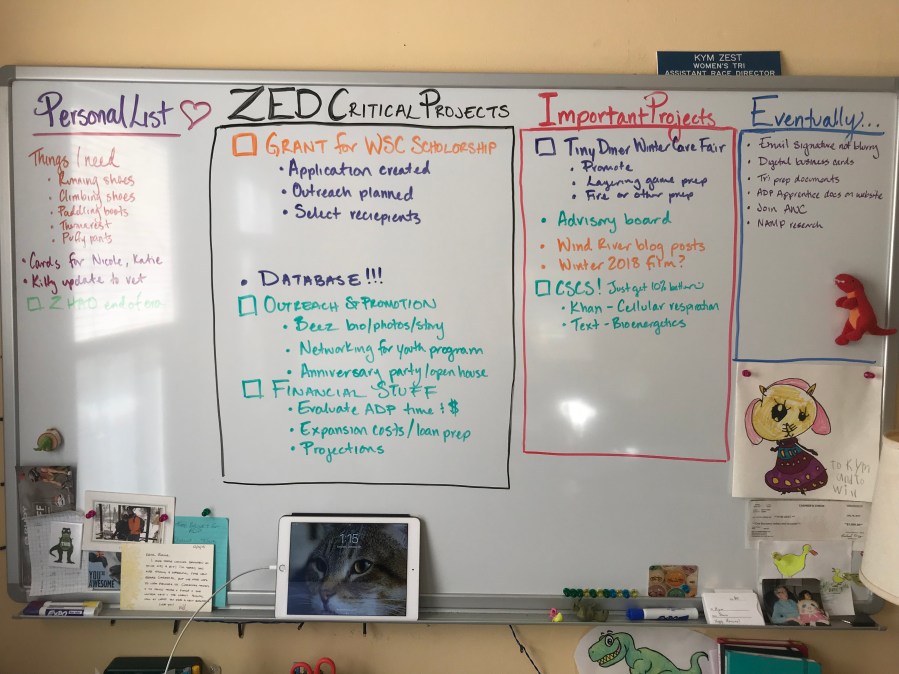 KYM ZEST
WOMEN'S TRI
ASSISTANT RACE DIRECTOR
Personal List
Things I need
• Running shoes
• Climbing shoes
• Paddling boots
• Thermarest
• Puffy pants
• Cards for Nicole, Katie
• Kitty update to vet
ZED Critical Projects
Grant for WSC Scholorship
• Application created
• Outreach planned
• Select reciepients
• Database!!!
Outreach & Promotion
• Beez bio/photos/story
• Networking for youth program
• Anniversary party/open house
Financial Stuff
• Evaluate ADP time & $
• Expansion costs/loan prep
• Projections
Important Projects
Tiny Dinor Winter Care Fair
• Promote
• Layering game prep
• Fire or other prep
• Advisory board
• Wind River blog posts
• Winter 2018 film?
CSCS! Just get 10% better
• Khan - Cellular respiration
• Text - Bioenergetics
Eventually...
• Email signature not blurry
• Digital business cards
• Tri prep documents
• ADP Apprentice docs on website
• Join AWC
• NAMP research
TO KYM
WIN
1:15
YOU'RE
AWESOME
EXPO